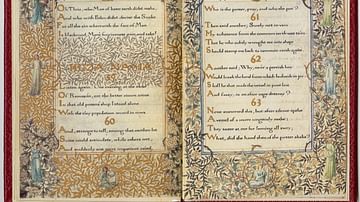 Oh Thou, who Man of baser earth didst make,
And who with Eden didst devise the Snake
For all the sin wherewith the face of Man
Is blackened, Man's forgiveness give and take!
Listen again. One evening at the close
Of Ramazan, ere the better moon arose
In that old potter's shop I stood alone
With the clay population round in rows.
60
And, strange to tell, among that earthen lot
Some could articulate, while others not;
And suddenly one more impatient cried,
Who is the potter, pray, and who the pot?
61
Then said another, Surely not in vain
My substance from the common earth was ta'en
That he who subtly wrought me into shape
Should stamp me back to common earth again
62
Another said, Why, ne'er a peevish boy
Would break the bowl from which he drank in joy;
Shall he that made the vessel in pure love
And fancy, in an after rage destroy!
63
None answered this; but after silence spake
A vessel of a more ungainly make;
They sneer at me for leaning all awry;
What, did the hand then of the potter shake?